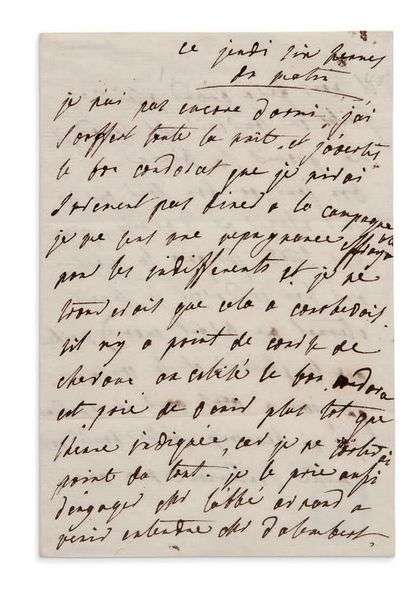 ce jeudi six heures
du matin
je n'ai pas encore dormi, j'ai
souffert toute la nuit. et j'avertis
le bon condorcet que je n'irai
surement pas diner a la campagne
je me sens une repugnance
pour les indifferents et je ne
trouverais que cela a
s'il n'y a point de course de
chevaux le bon
est prié de venir plus tot que
l'heure indiquée, car je ne sortirai
point du tout. je le prie aussi
d'engager l'abbé arnaud a
venir entendre d'alembert